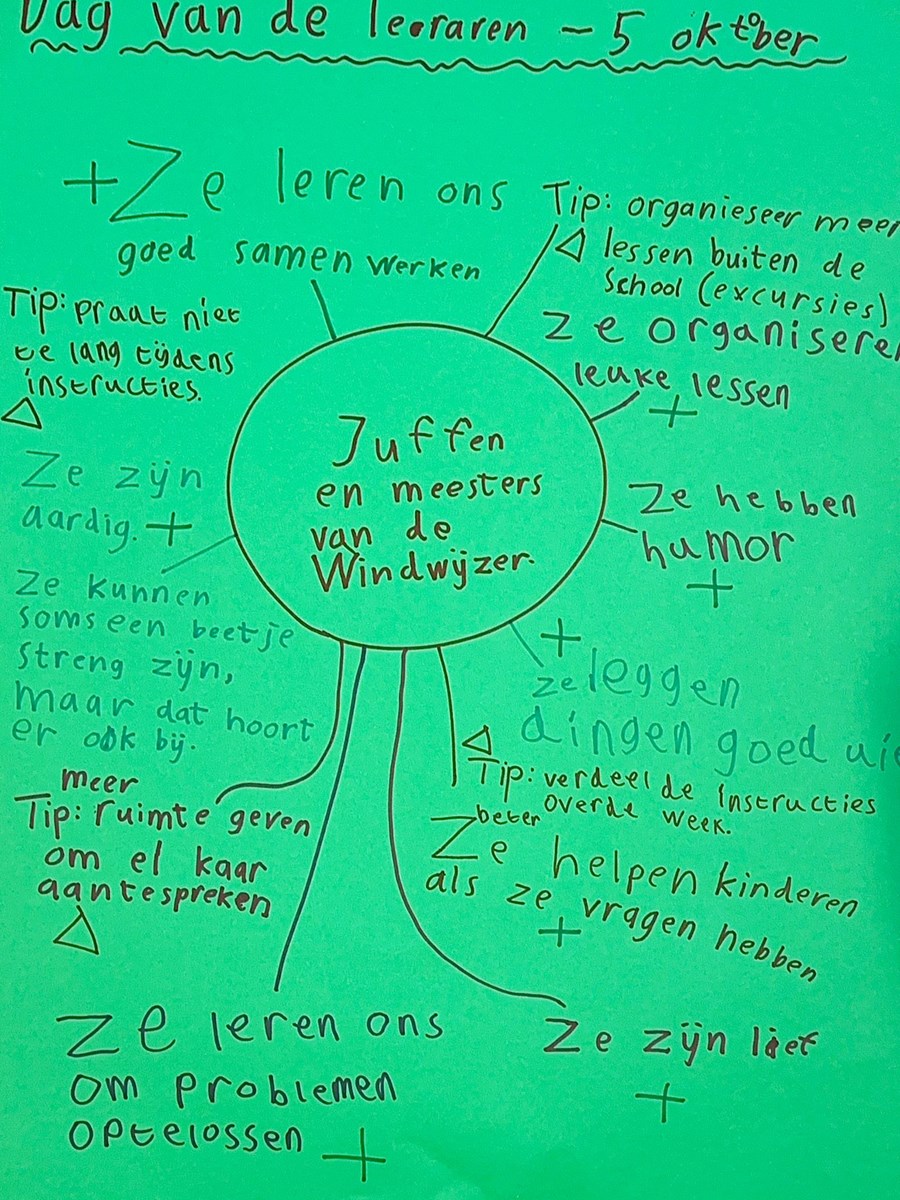 Dag van de leraren - 5 oktober
+ Ze leren ons
goed samen werken
Tip: organieseer meer
lessen buiten de
school (excursies)
ze organiseren
leuke lessen
+
Tip: praat niet
te lang tijdens
instructies.
Juffen
en meesters
van de
Windwijzer.
Ze zijn
aardig. +
Ze hebben
humor
+
Ze kunnen
soms een beetje
streng zijn,
maar dat hoort
er ook bij.
+
ze leggen
dingen goed uit
Tip: verdeel de instructies
beter over de week.
meer
Tip: ruimte geven
om el kaar
aantespreken
Ze helpen kinderen
als ze vragen hebben
+
Ze leren ons
om problemen
optelossen +
Ze zijn lief
+